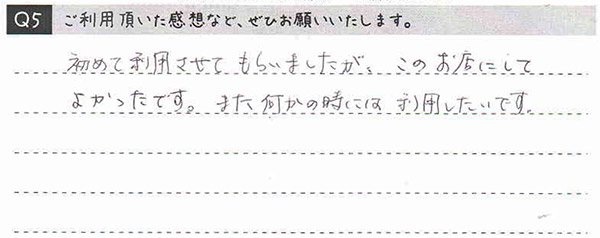 Q5 ご利用頂いた感想など、ぜひお願いいたします。
初めて利用させて もらいましたが、このお店にして
よかったです。また何かの時には 利用したいです。